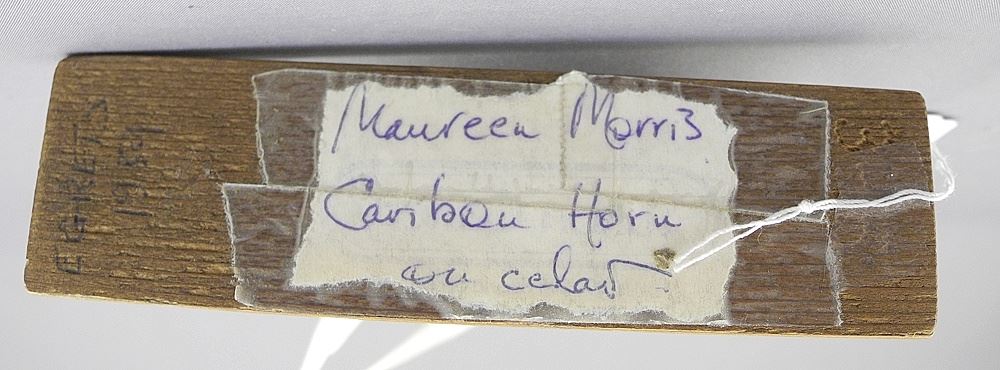 EGRETS
1989
Maureen Morris
Caribou Horn
on celar